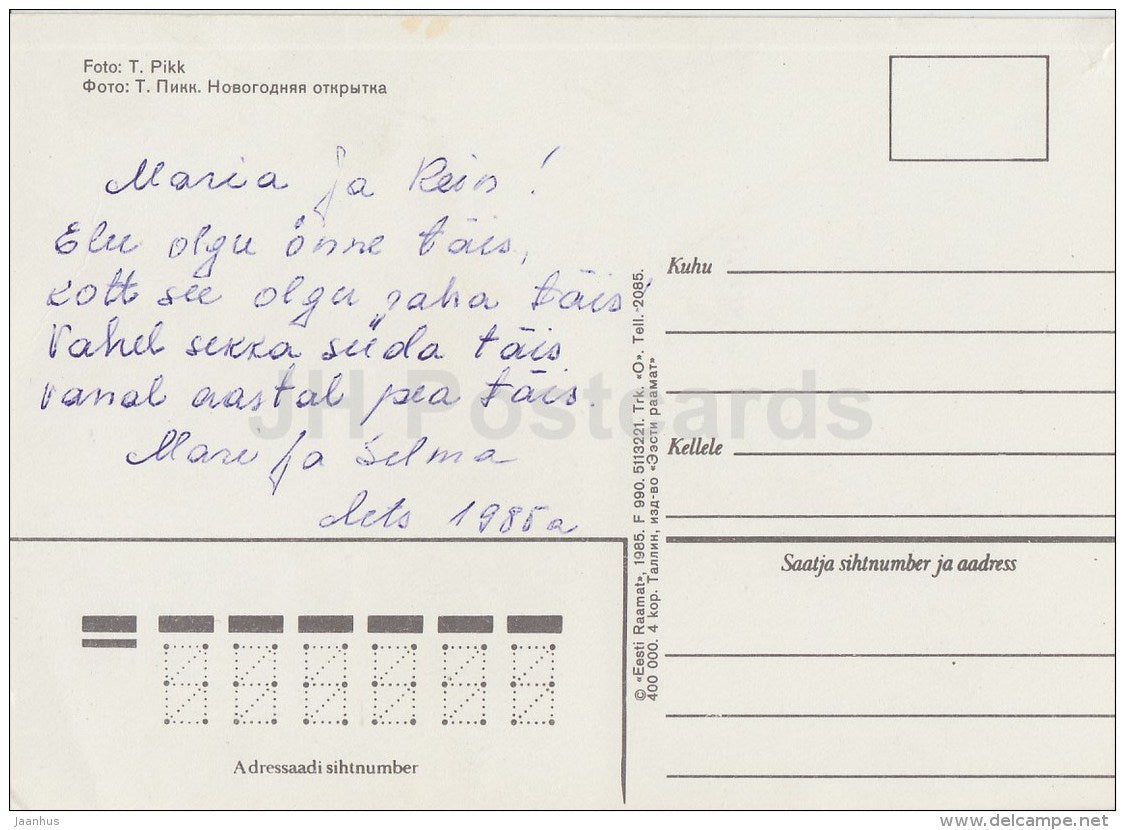 Foto: T. Pikk
Фото: Т. Пикк. Новогодняя открытка
Maria ja Rein!
Elu olgu õnne täis,
Kott see olgu raha täis!
Vahel sekka süda täis
vanal aastal pea täis.
Mari ja Selma
1985a
Kuhu
Kellele
© «Eesti Raamat», 1985. F 990. 5113221. Trk. «O». Tell. 2085.
400 000. 4 kop. Таллин, изд-во «Ээсти раамат»
Saatja sihtnumber ja aadress
Adressaadi sihtnumber
JH Postcards
Jaanhus
www.delcampe.net